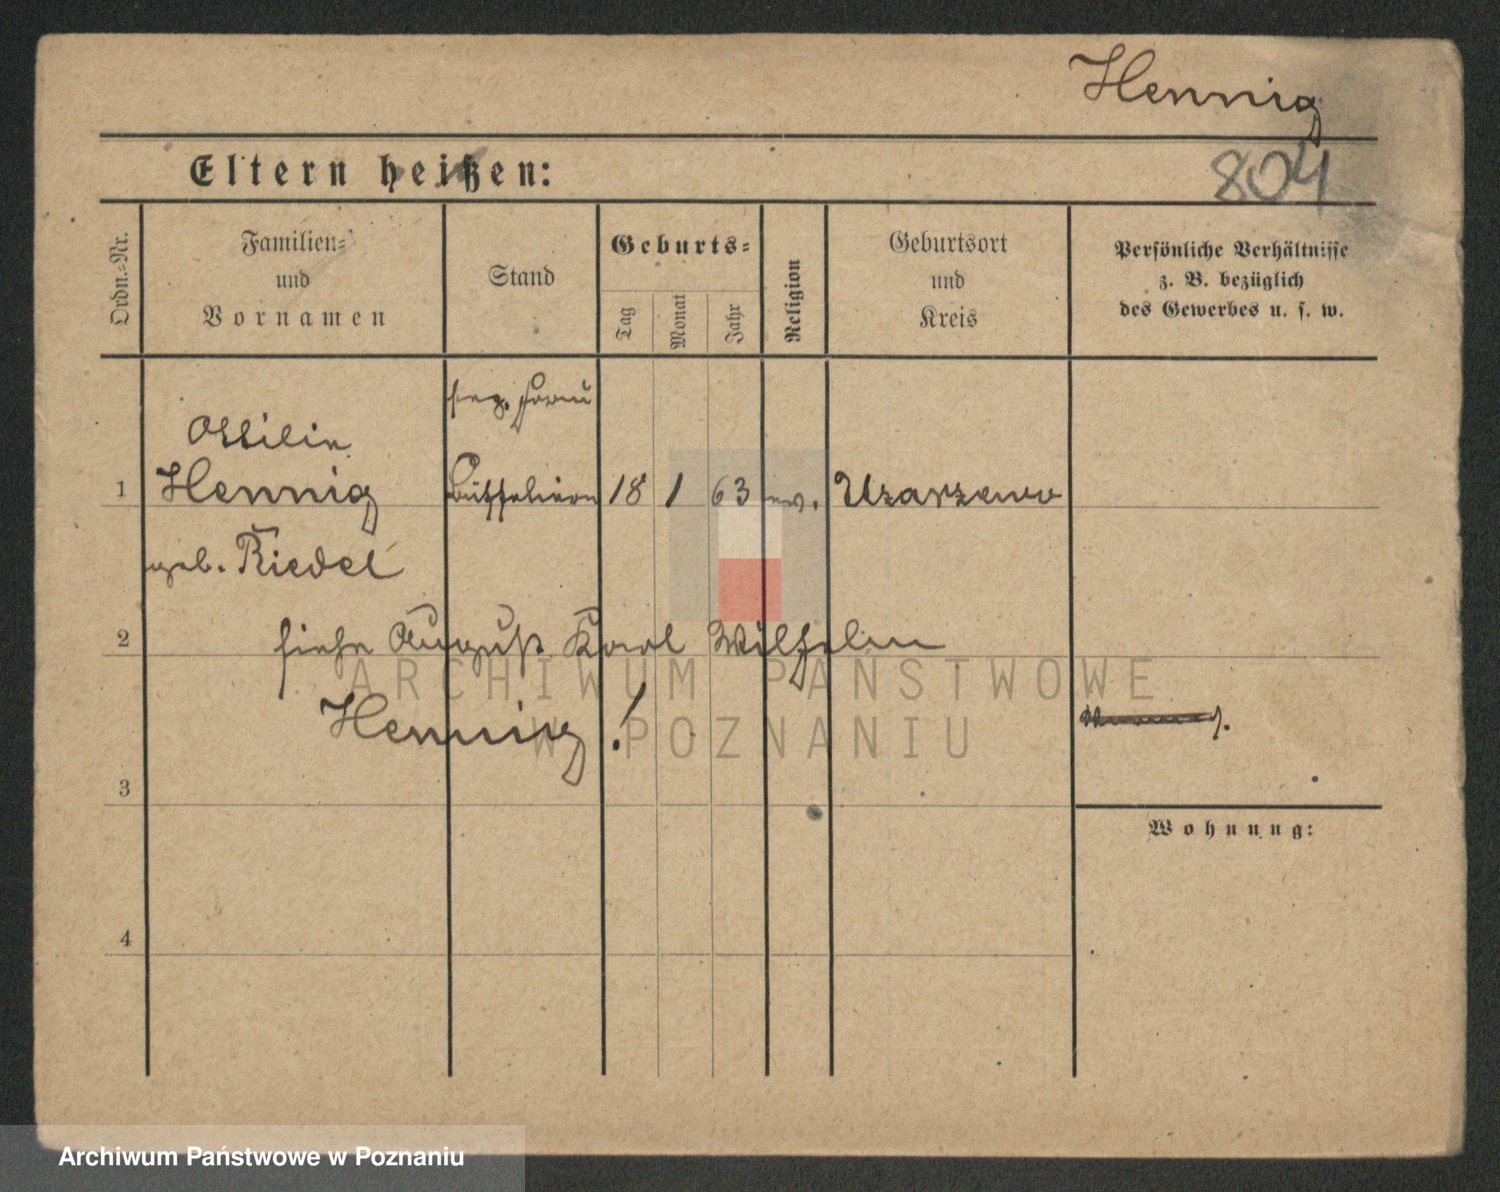 Hennig
804
Eltern heißen:
Ordn.=Nr.
Familien=
und
Vornamen
Stand
Geburts=
Tag
Monat
Jahr
Religion
Geburtsort
und
Kreis
Persönliche Verhältnisse
z. B. bezüglich
des Gewerbes u. s. w.
Ottilie
1 Hennig 18 1 63 ev. Uzarzewo
geb. Riedel
2 siehe August Karl Wilhelm
Hennig!
3
Wohnung:
4
ARCHIWUM PAŃSTWOWE
W POZNANIU
Archiwum Państwowe w Poznaniu